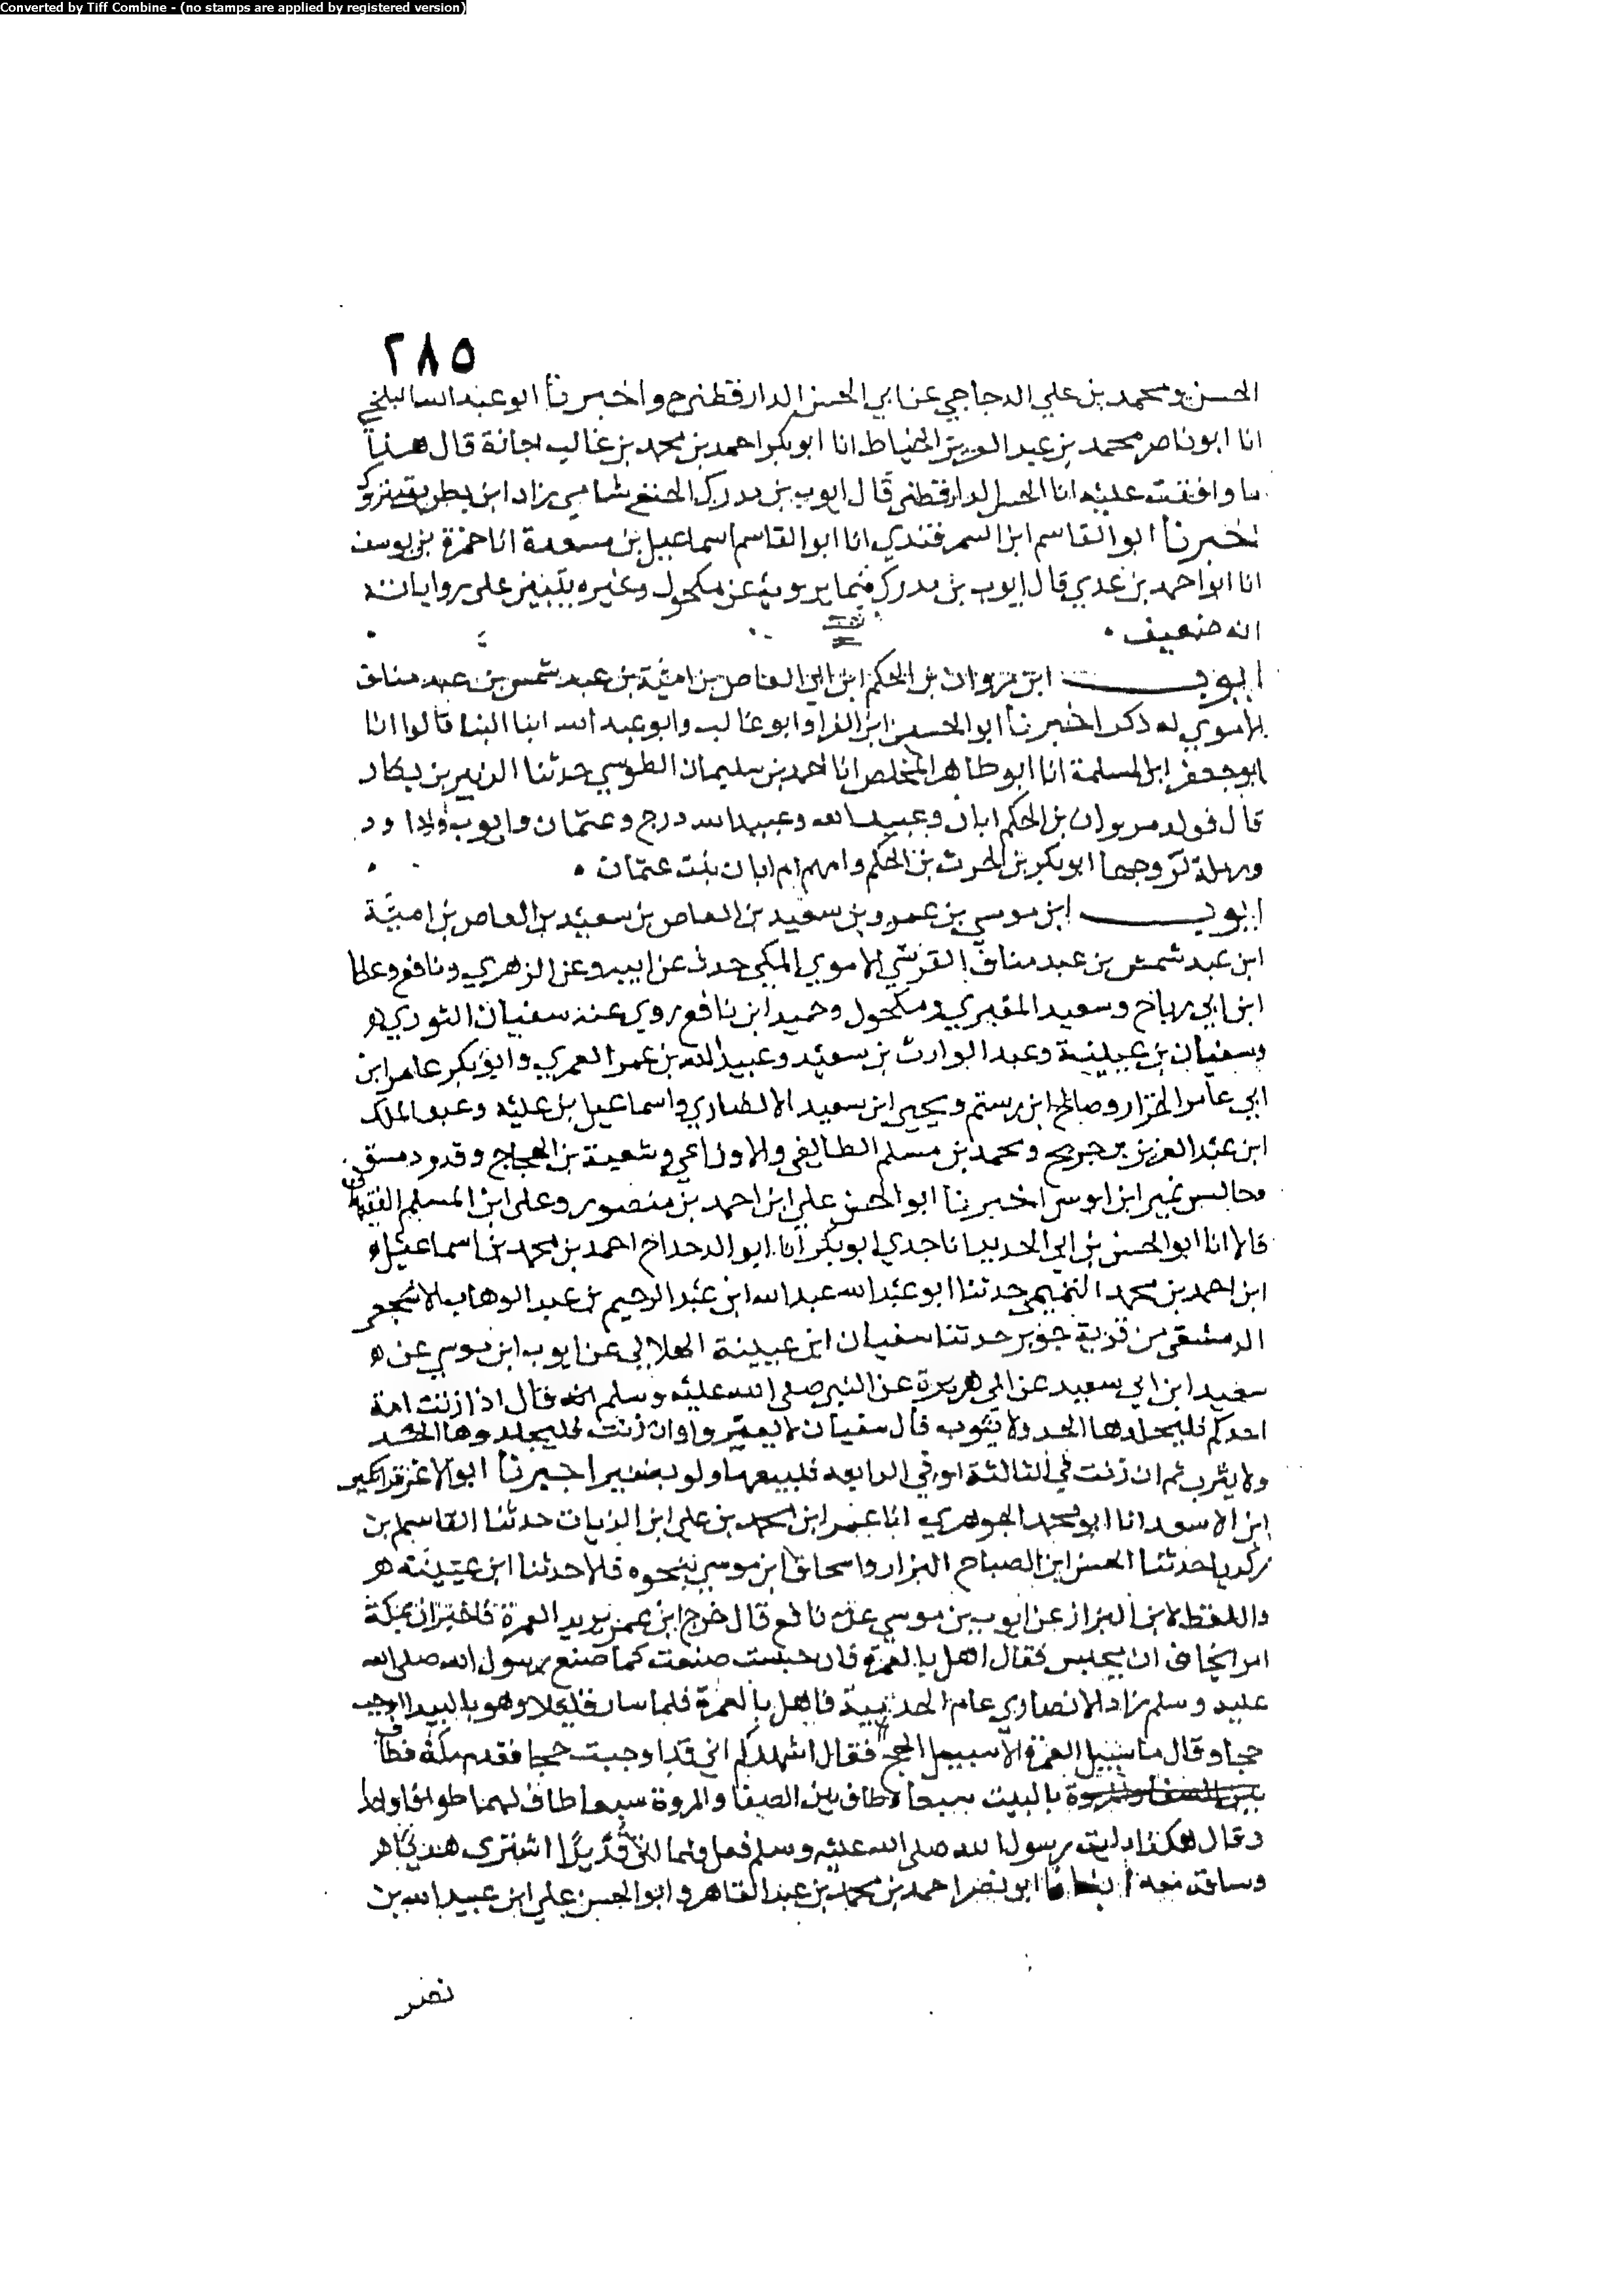 Converted by Tiff Combine - (no stamps are applied by registered version)
٢٨٥
الحسن ومحمد بن علي الدجاجي عن ابي الحسن الدارقطني ح واخبرنا ابو عبد الله البلخي
انا ابو ناصر محمد بن عبد العزيز الخياط انا ابو بكر احمد بن محمد بن غالب اجازة قال هذا
ما وافقت عليه انا الحسن الدارقطني قال ايوب بن مدرك الحنفي شامي زاد ابن بطريق متروك
اخبرنا ابو القاسم ابن السمرقندي انا ابو القاسم اسماعيل بن مسعدة انا حمزة بن يوسف
انا ابو احمد بن عدي قال ايوب بن مدرك فيما يرويه عن مكحول وغيره يتبين على رواياته
انه ضعيف
ايوب ابن مروان بن الحكم ابن ابي العاص بن امية بن عبد شمس بن عبد مناف
الاموي له ذكر اخبرنا ابو الحسين ابن الفرا وابو غالب وابو عبد الله ابنا البنا قالوا انا
ابو جعفر ابن المسلمة انا ابو طاهر المخلص انا احمد بن سليمان الطوسي حدثنا الزبير بن بكار
قال فولد مروان بن الحكم ابان وعبيد الله وعبيد الله درج وعثمان وايوب وداود
ورملة تزوجها ابو بكر بن الحرث بن الحكم وامهم ام ابان بنت عثمان
ايوب ابن موسي بن عمرو بن سعيد بن العاص بن سعيد بن العاص بن امية
ابن عبد شمس بن عبد مناف القرشي الاموي المكي حدث عن ابيه وعن الزهري ونافع وعطا
ابن ابي رباح وسعيد المقبري ومكحول وحميد ابن نافع روي عنه سفيان الثوري
وسفيان بن عيينة وعبد الوارث بن سعيد وعبيد الله بن عمر العمري وابو بكر عامر ابن
ابي عامر الخزار وصالح ابن رستم ويحيى ابن سعيد الانصاري واسماعيل بن علية وعبد الملك
ابن عبد العزيز بن جريج ومحمد بن مسلم الطايفي والاوزاعي وشعبة بن الحجاج وقدم دمشق
وجالس نمير ابن اوس اخبرنا ابو الحسن علي ابن احمد بن منصور وعلى ابن المسلم الفقيهان
قالا انا ابو الحسن بن ابي الحديد انا جدي ابو بكر انا ابو الدحداح احمد بن محمد بن اسماعيل
ابن احمد بن محمد التميمي حدثنا ابو عبد الله عبد الله ابن عبد الرحيم بن عبد الوهاب الاشجعي
الدمشقي من قرية جوبر حدثنا سفيان ابن عيينة الهلالي عن ايوب ابن موسي عن
سعيد ابن ابي سعيد عن ابي هريرة عن النبي صلى الله عليه وسلم انه قال اذا زنت امة
احدكم فليجلدها الحد ولا يثرب قال سفيان لا يعير وان زنت فليجلدوها الحد
ولا يثرب ثم ان زنت في الثالثة او في الرابعه فليبعها ولو بضفير اخبرنا ابو الاغر قراتكين
ابن الاسعد انا ابو محمد الجوهري انا عمر ابن محمد بن علي ابن الزيات حدثنا القاسم بن
زكريا حدثنا الحسن ابن الصباح البزار واسحاق ابن موسي بنحوه قالا حدثنا ابن عيينه
واللفظ لابن البزاز عن ايوب بن موسي عن نافع قال خرج ابن عمر يريد العمرة فاخبر ان بمكة
امرا يخاف ان يحبس فقال اهل بالعمرة فان حبست صنعت كما صنع رسول الله صلى الله
عليه وسلم زاد الانصاري عام الحديبية فاهل بالعمرة فلما سار قليلا وهو بالبيدا اوجب
حجا وقال ما سبيل العمرة الا سبيل الحج فقال اشهدكم اني قد اوجبت حجا فقدم مكة فطاف
بين الصفا والمروة بالبيت سبعا وطاف بين الصفا والمروة سبعا طاف لهما طوافا واحدا
وقال هكذا رايت رسول الله صلى الله عليه وسلم فعل ولما اتى قديدا اشترى هديا
وساقه معه انبانا ابو نصر احمد بن محمد بن عبد القاهر وابو الحسن علي ابن عبيد الله بن
نصر